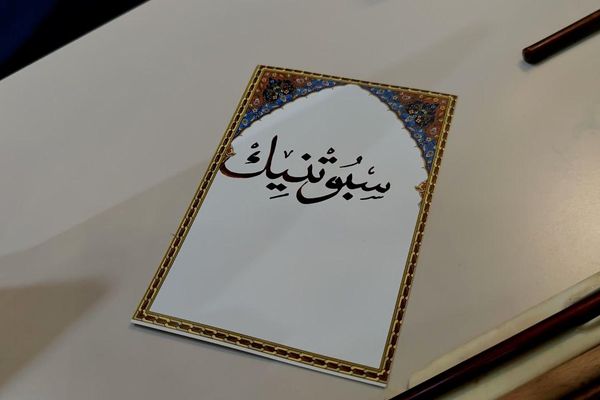 سِبُوتْنِيكْ